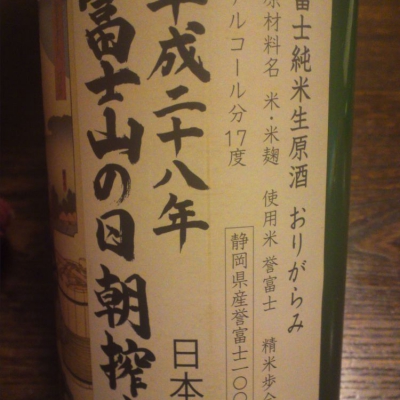 富士純米生原酒 おりがらみ
原材料名 米・米麹 使用米 誉富士 精米歩合
アルコール分17度
静岡県産誉富士一〇〇
平成二十八年
日本
富士山の日朝搾